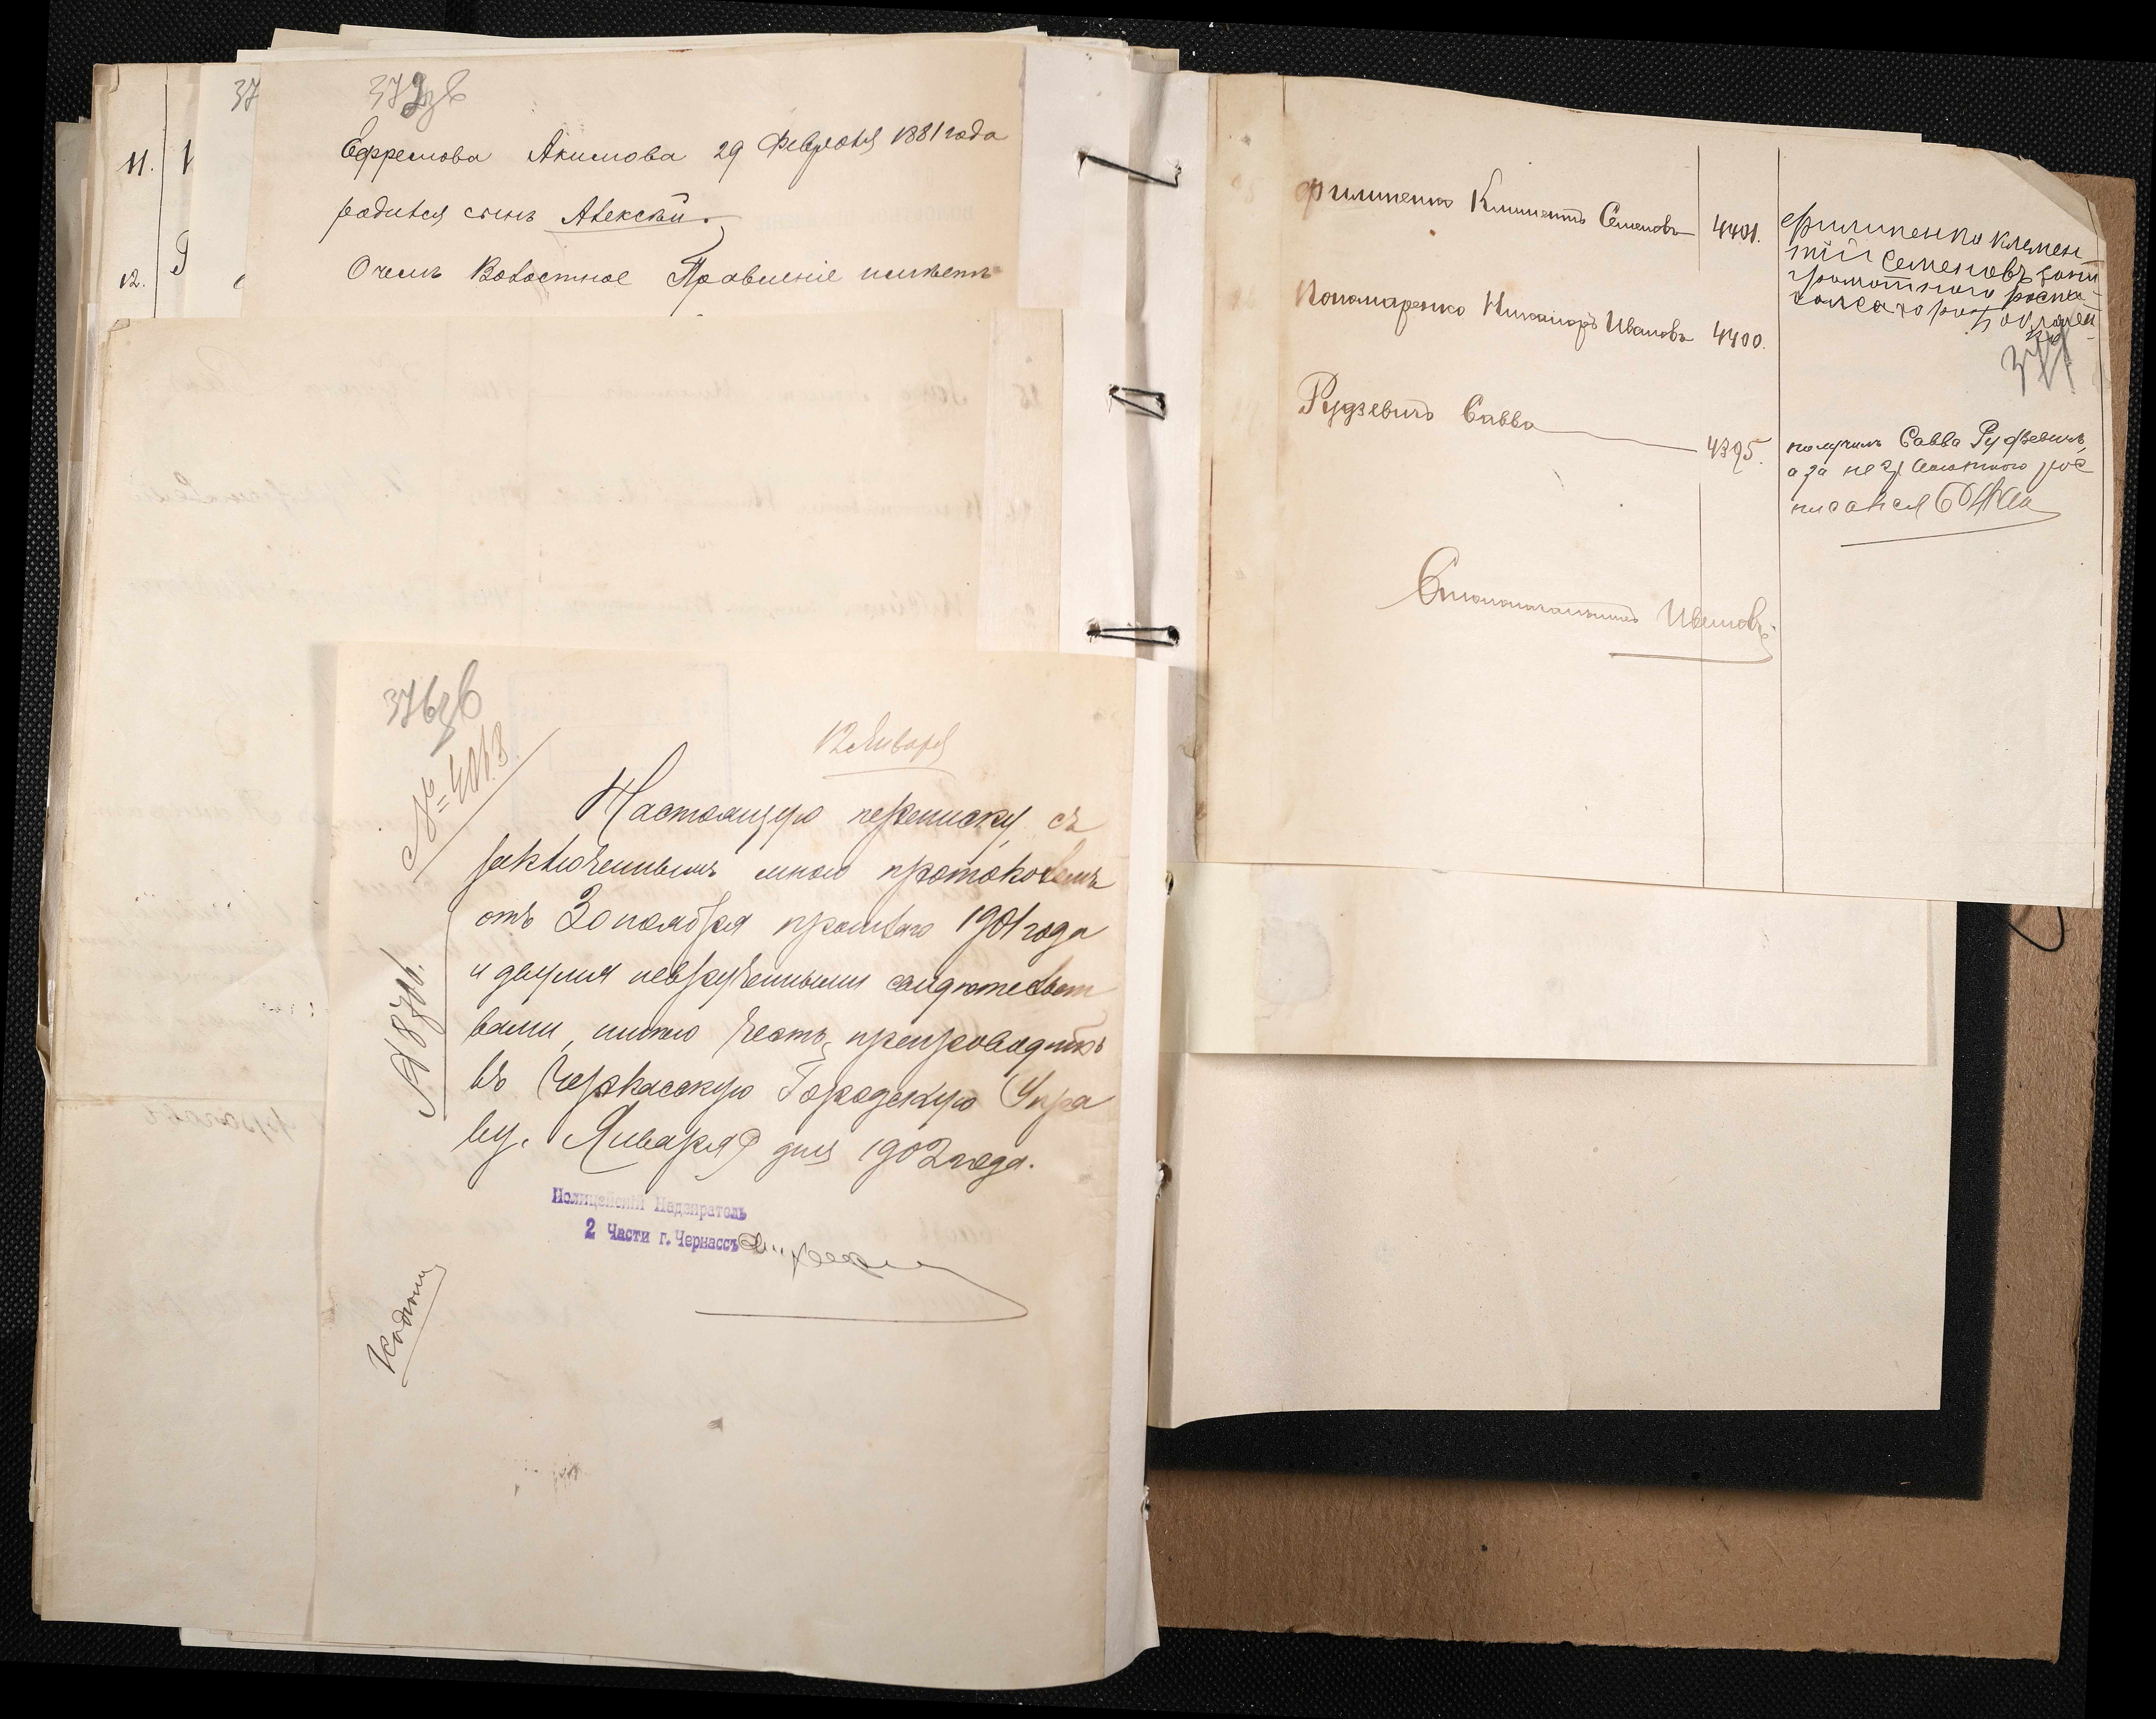 11.
12.
37
372зв
Ефремова Акимова 29 Февраля 1881 года
родился сынъ Алексѣй.
О чемъ Волостное Правленіе имѣетъ
376зв
12 Января
Настоящую переписку съ
заключеннымъ мною протоколомъ
отъ 30 ноября прошлаго 1901 года
и двумя неврученными свидѣтельст
вами, имѣю честь препроводить
въ Черкасскую Городскую Упра
ву. Января 9 дня 1902 года.
Полицейскій Надзиратель
2 Части г. Черкассъ
Филипенко Климентъ Семеновъ 4401.
Филипенко Клемен
тій Семеновъ
Пономаренко Никаноръ Ивановъ 4400.
377
Рудзевичъ Савва 4395.
получилъ Савва Рудзевичъ
а за неграмотного рос
писался
Столоначальникъ